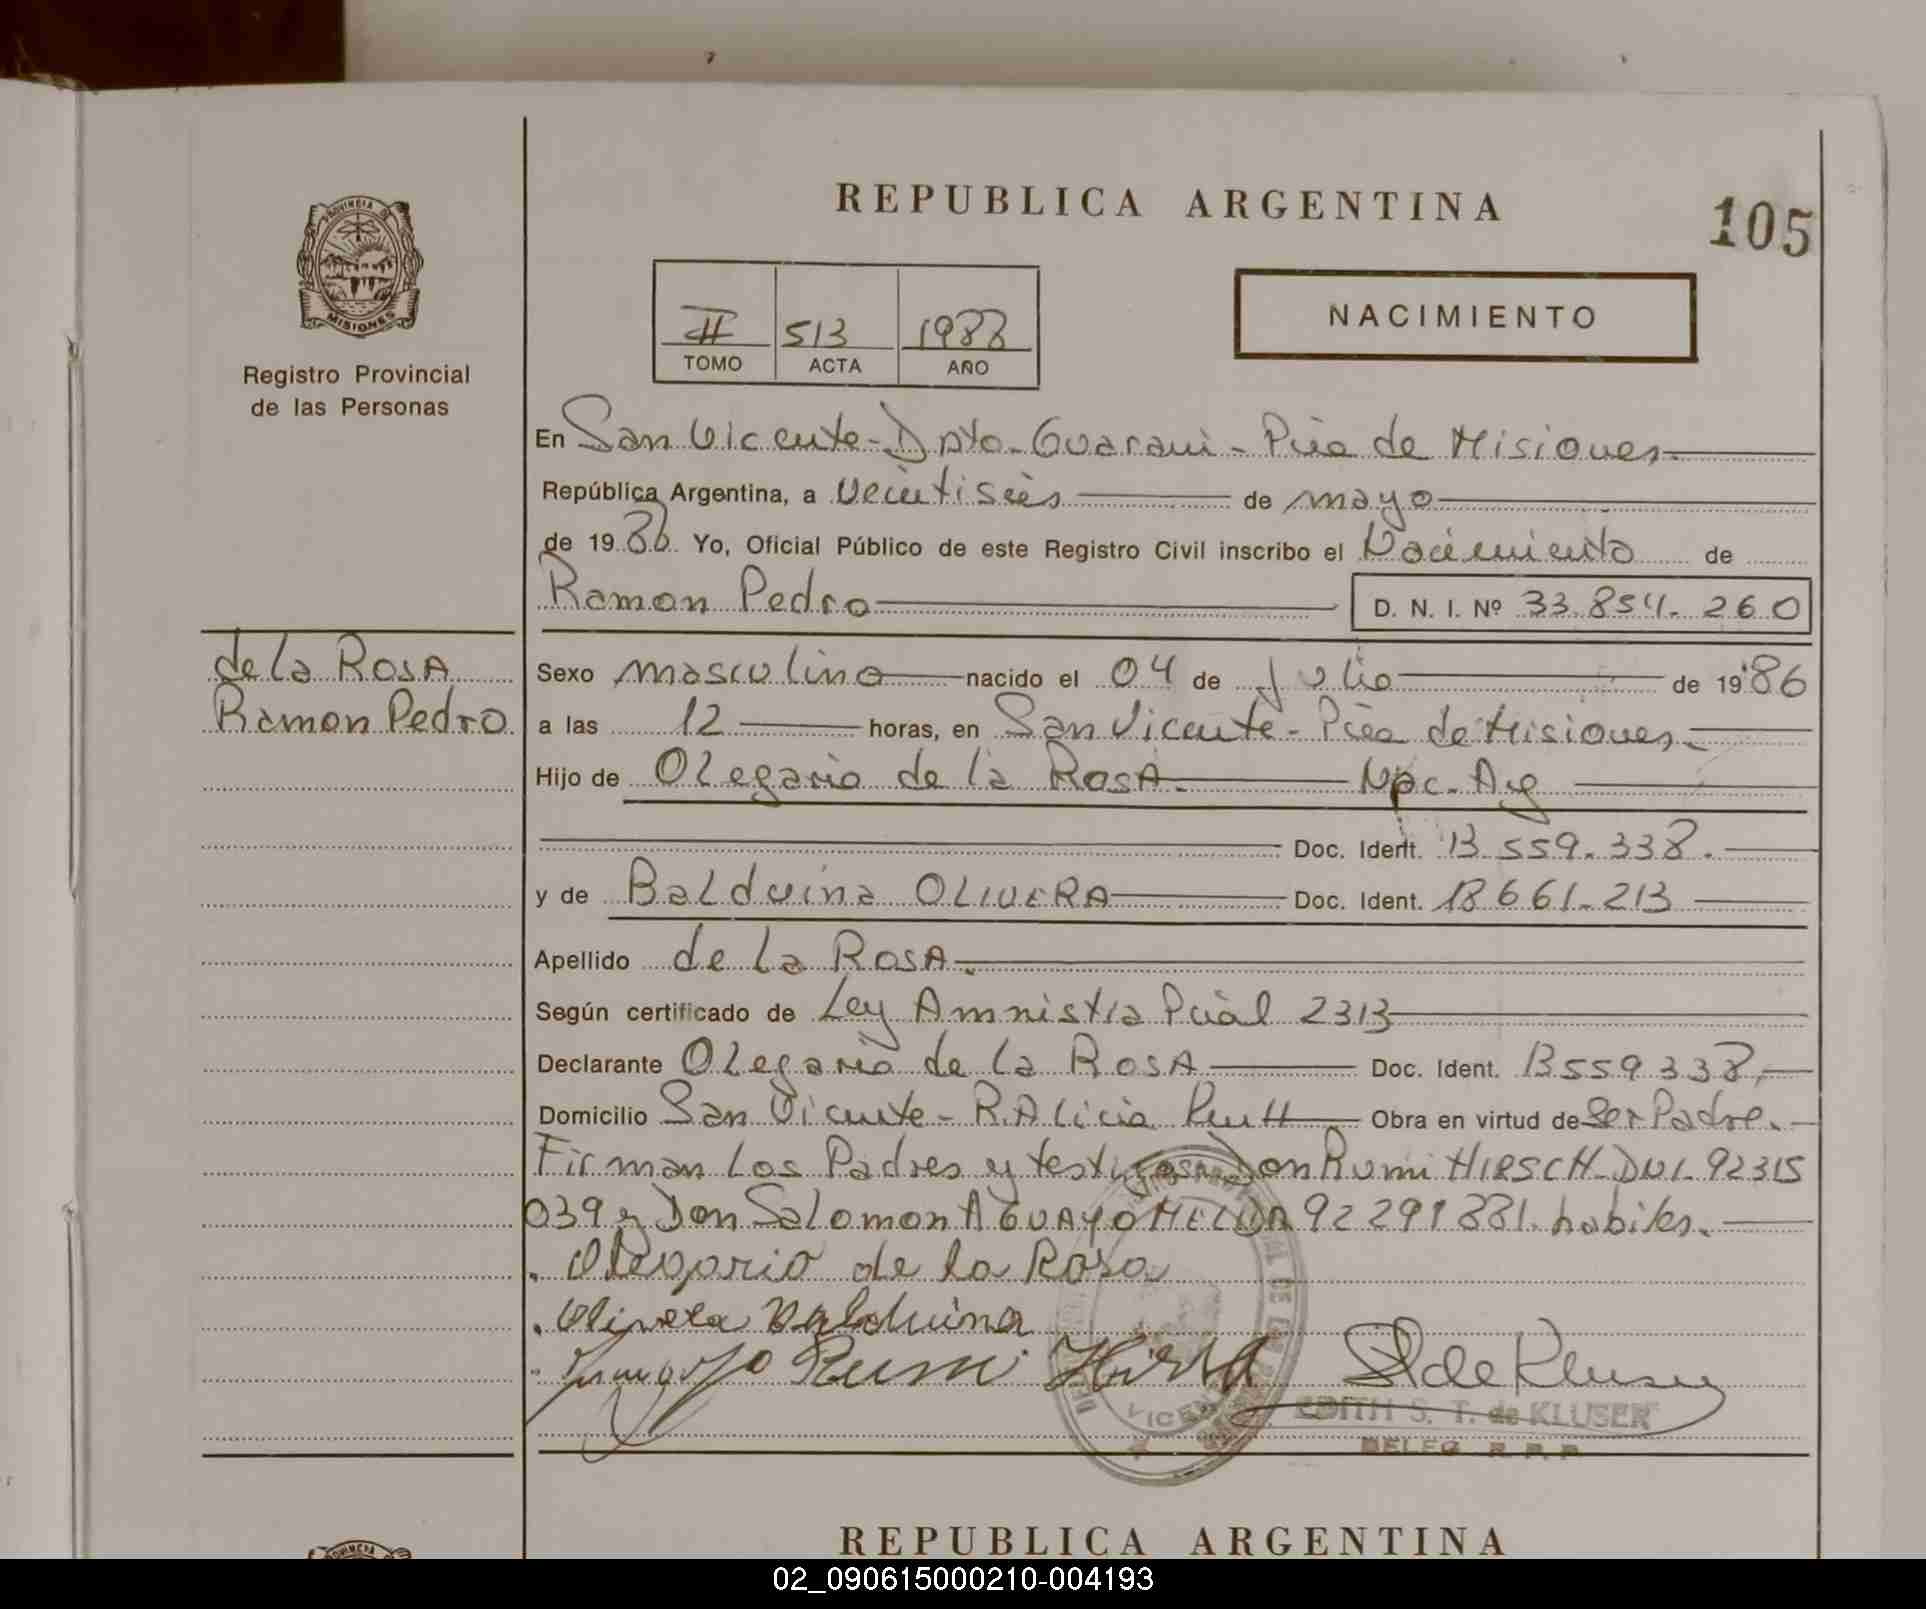 REPUBLICA ARGENTINA
105
PROVINCIA DE
MISIONES
Registro Provincial
de las Personas
II 513 1988
TOMO ACTA AÑO
NACIMIENTO
En San Vicente - Dpto - Guarani - Pcia de Misiones.
República Argentina, a veintiseis de mayo
de 1988 Yo, Oficial Público de este Registro Civil inscribo el Nacimiento de
Ramon Pedro D. N. I. Nº 33.854.260
de la ROSA
Ramon Pedro
Sexo masculino nacido el 04 de Julio de 1986
a las 12 horas, en San Vicente - Pcia de Misiones.
Hijo de Olegario de la ROSA. Nac. Arg
Doc. Ident. 13.559.338.
y de Balduina OLIVERA Doc. Ident. 18661.213
Apellido de la ROSA.
Según certificado de Ley Amnistia Pcial 2313
Declarante Olegario de la ROSA Doc. Ident. 13559338,
Domicilio San Vicente - R. Alicia Obra en virtud de Ser Padre.
Firman los Padres y testigos Don Rumi HIRSCH - DNI. 92315
039 y Don Salomon AGUAYO 92291881. habiles.
. Olegario de la Rosa
. Olivera Balduina
Rumi Hirsch
S de Kluser
EDITH S. T. de KLUSER
DELEG R. P. P.
REPUBLICA ARGENTINA
02_090615000210-004193